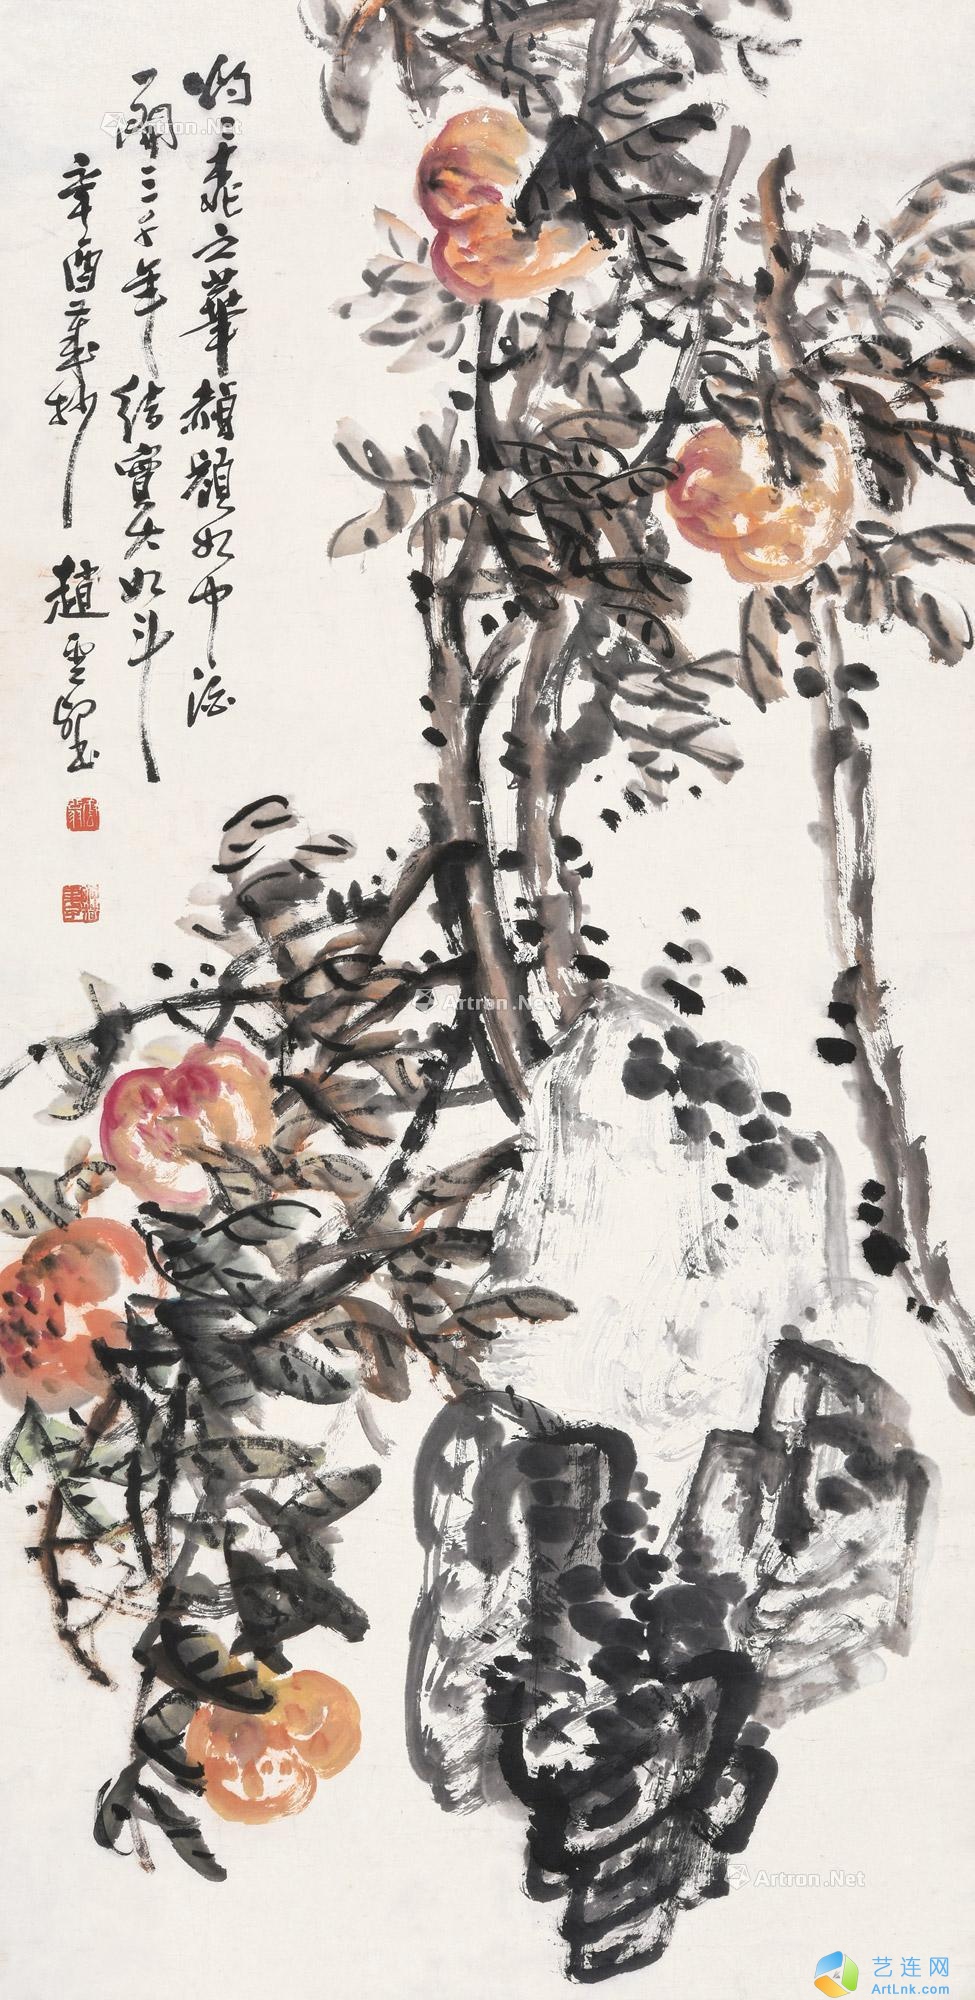 灼〻桃之華赬顏如中酒
一開三千年結實大如斗
辛酉歲抄
趙雲壑
Artron.Net
Artron.Net
Artron.Net
艺连网
ArtLnk.com